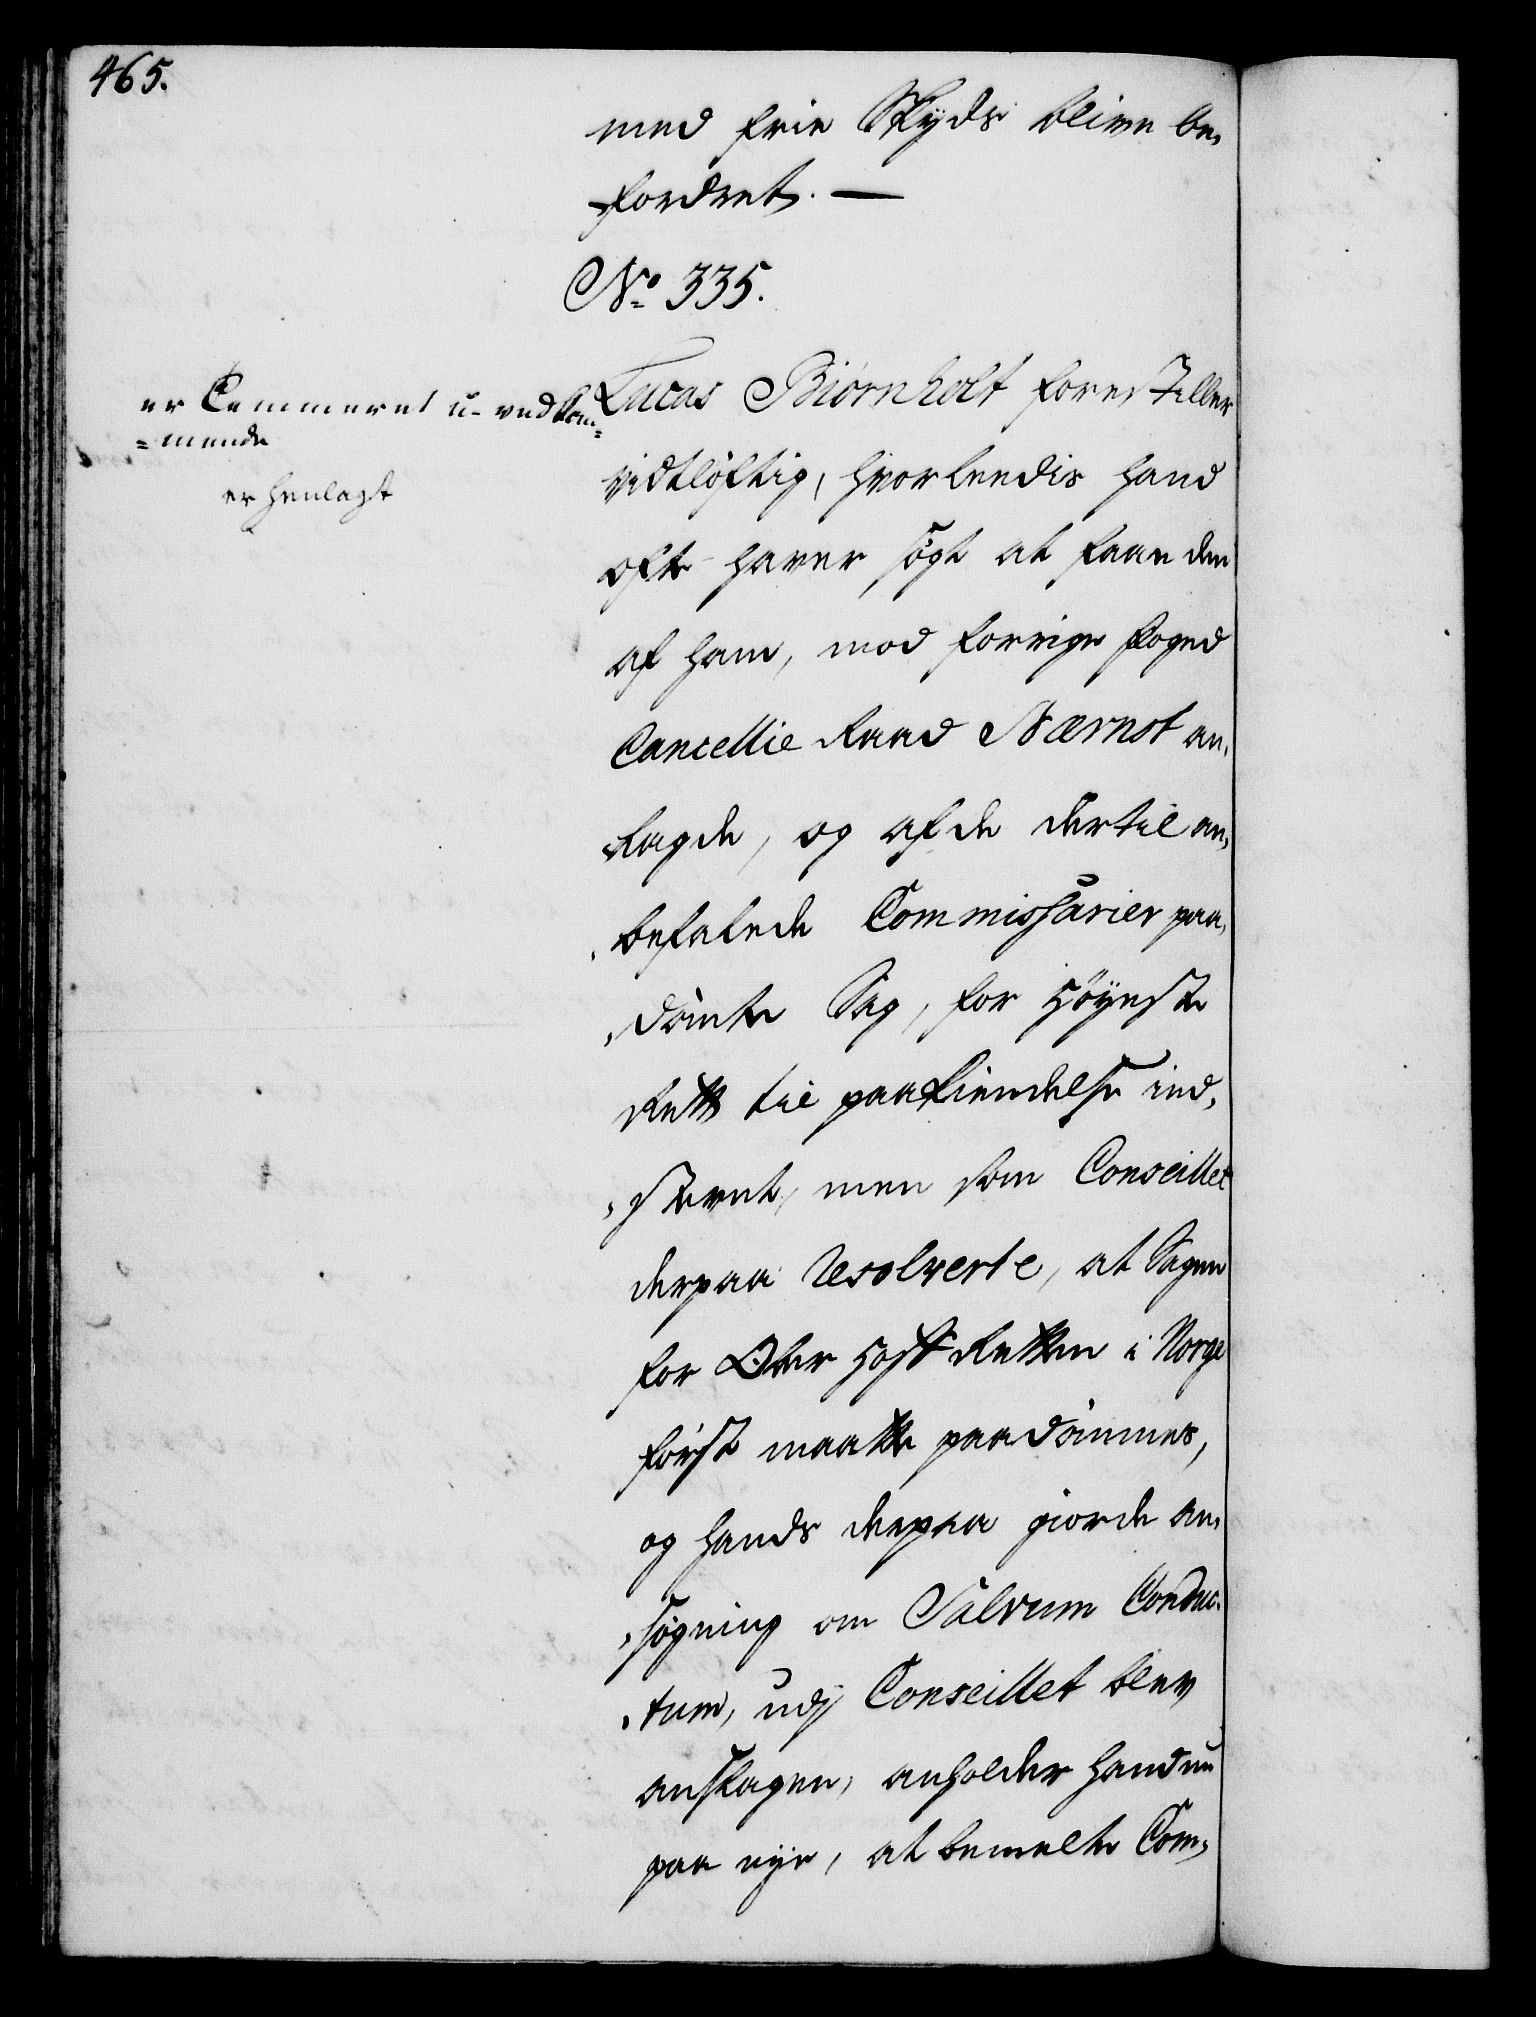 465.
med frie Skyds blive be,
fordret. —
No 335.
er Cammeret u-vedkom=
=mende
er henlagt
Lucas Biørnholt forestiller
vidtløftig, hvorleedis hand
ofte haver søgt at faae den
af ham, mod forrige foged
Cancellie Raad Nærnst an,
lagde, og af de dertil an,
befalede Commissarier paa,
dømte Sag, for Høyeste
Rett til paakiendelse ind,
stevnt, men som Conseillet
derpaa resolverte, at Sagen
for Ober Hoff Retten i Norge
først maatte paadømmes,
og hands derpaa giorde an,
søgning om Salvum Conduc,
tum, udj Conseillet blev
afslagen, anholder hand nu
paa nye, at bemelte Com,